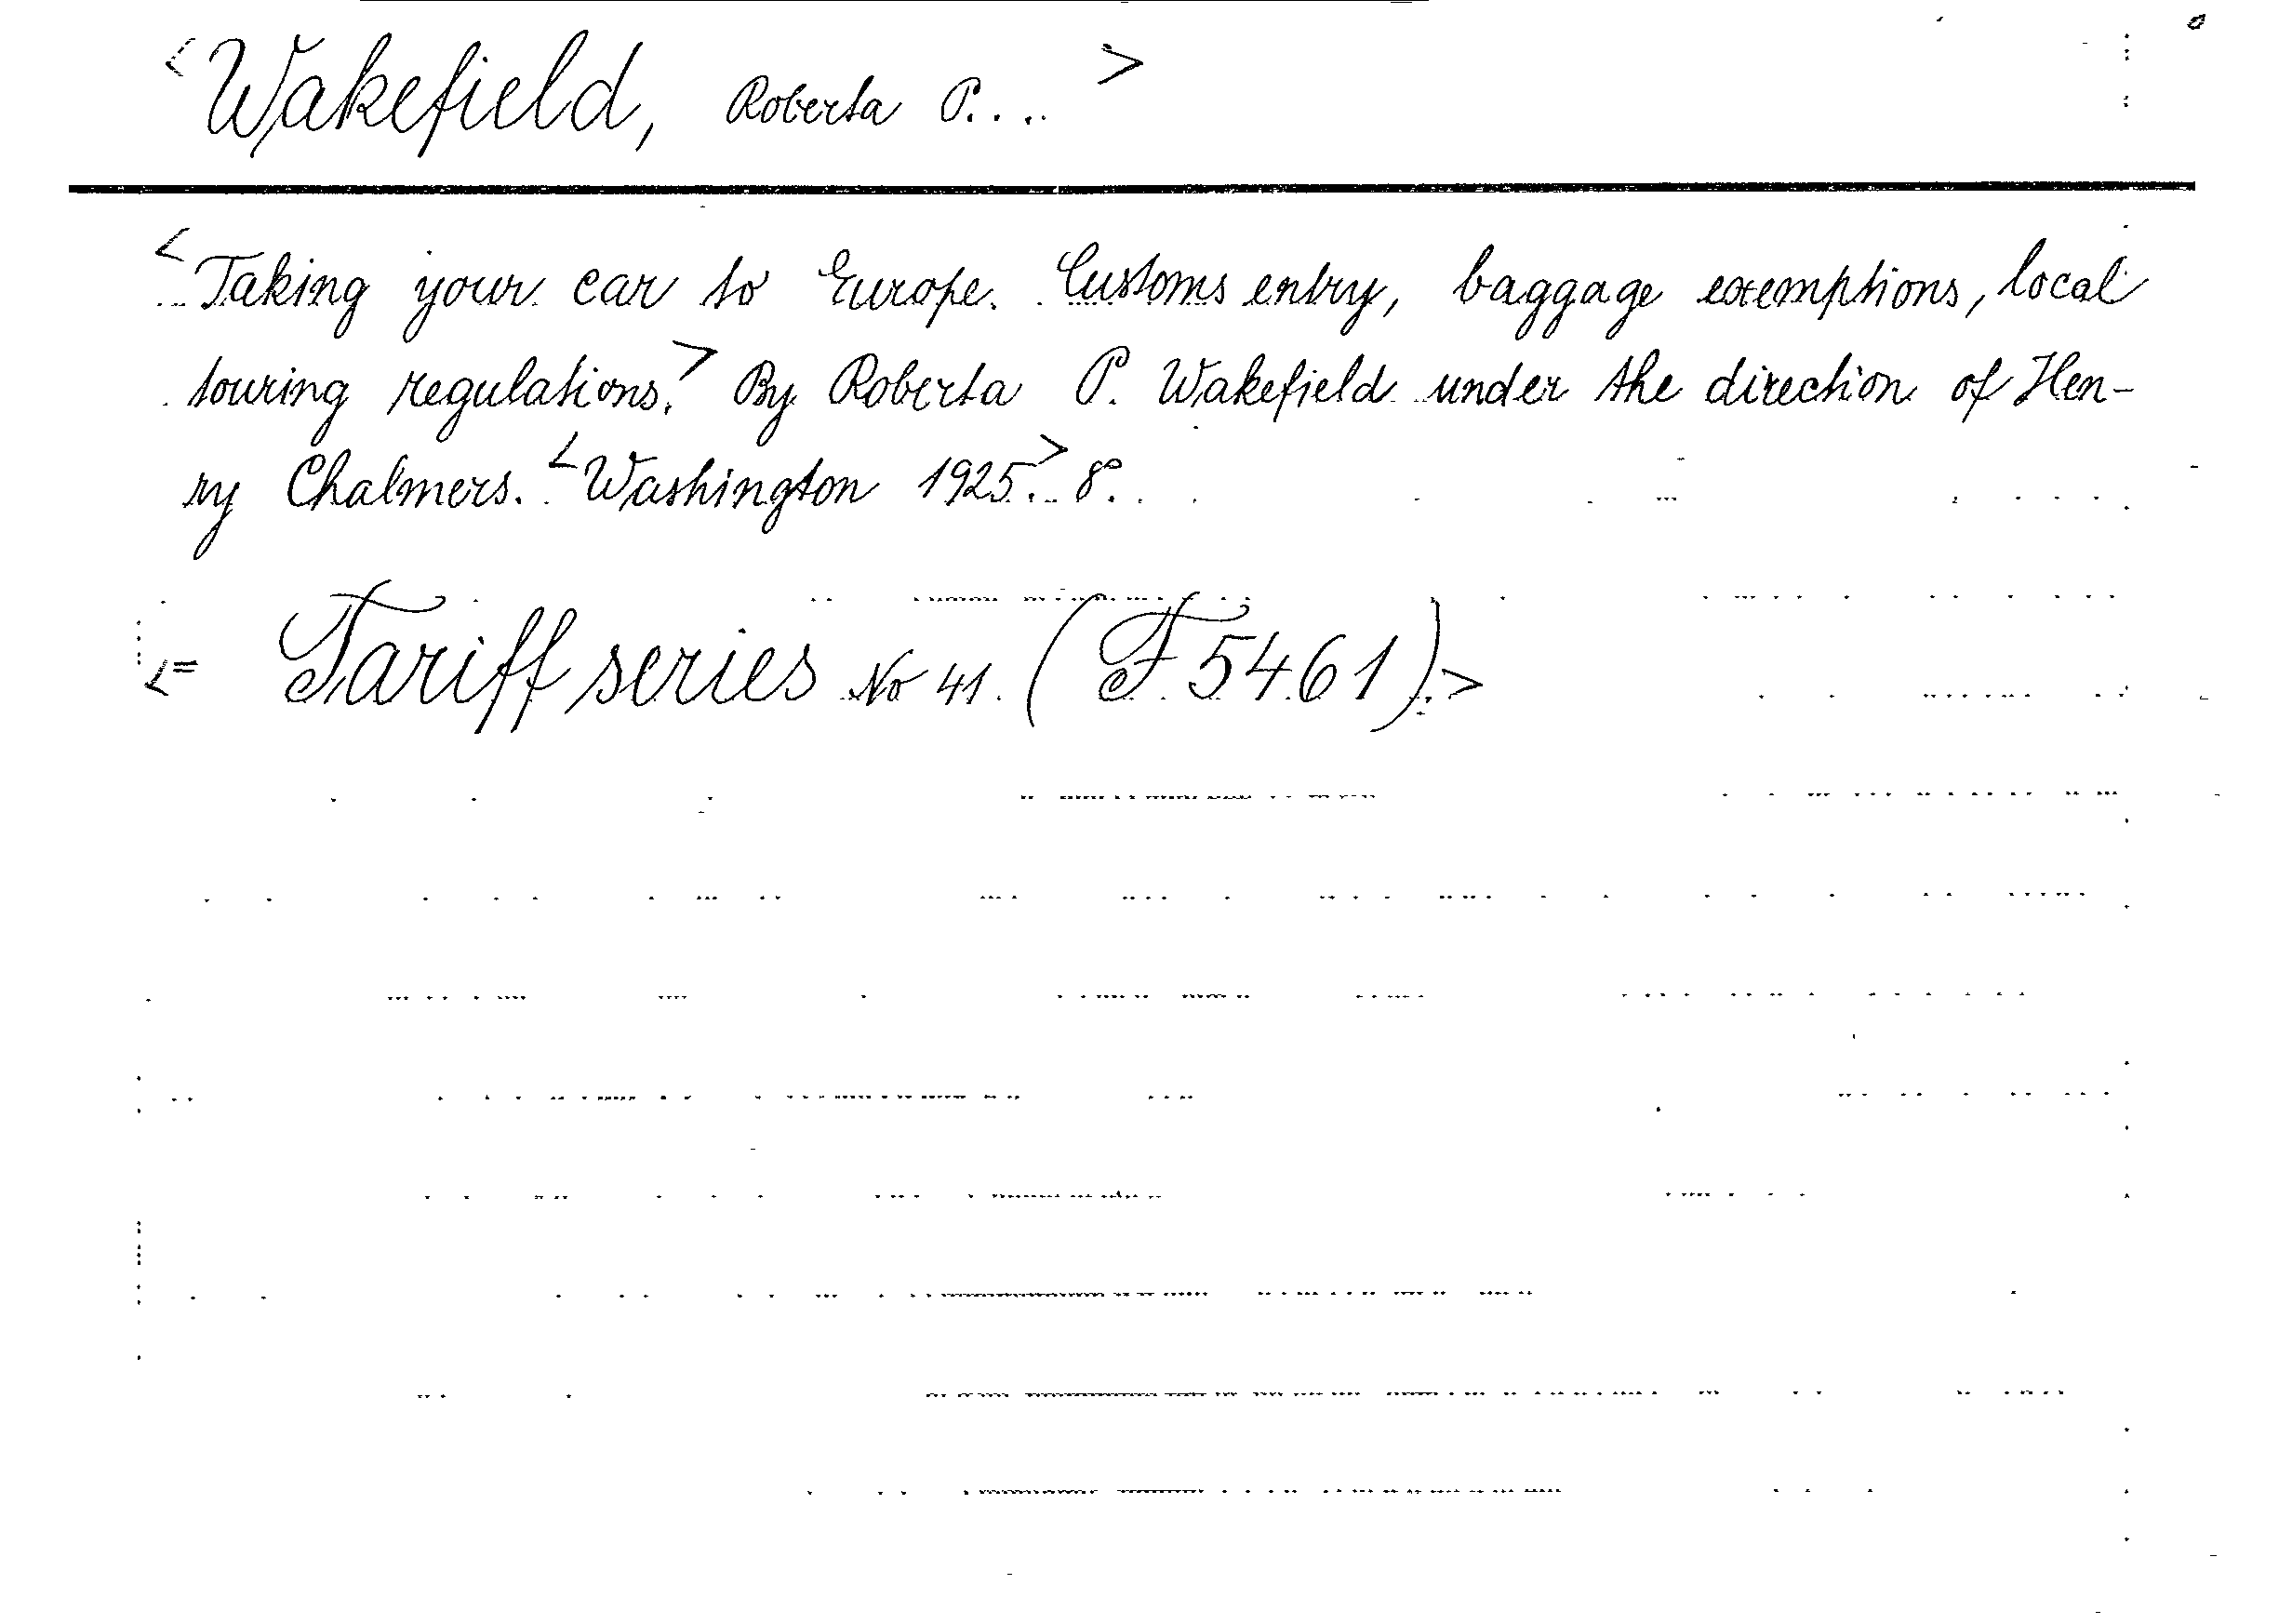 <Wakefield, Roberta P... >
<Taking your car to Europe. Customs entry, baggage exemptions, local
touring regulations.> By Roberta P. Wakefield under the direction of Hen-
ry Chalmers. <Washington 1925.> 8°.
<= Tariff series No 41. (F. 5461).>